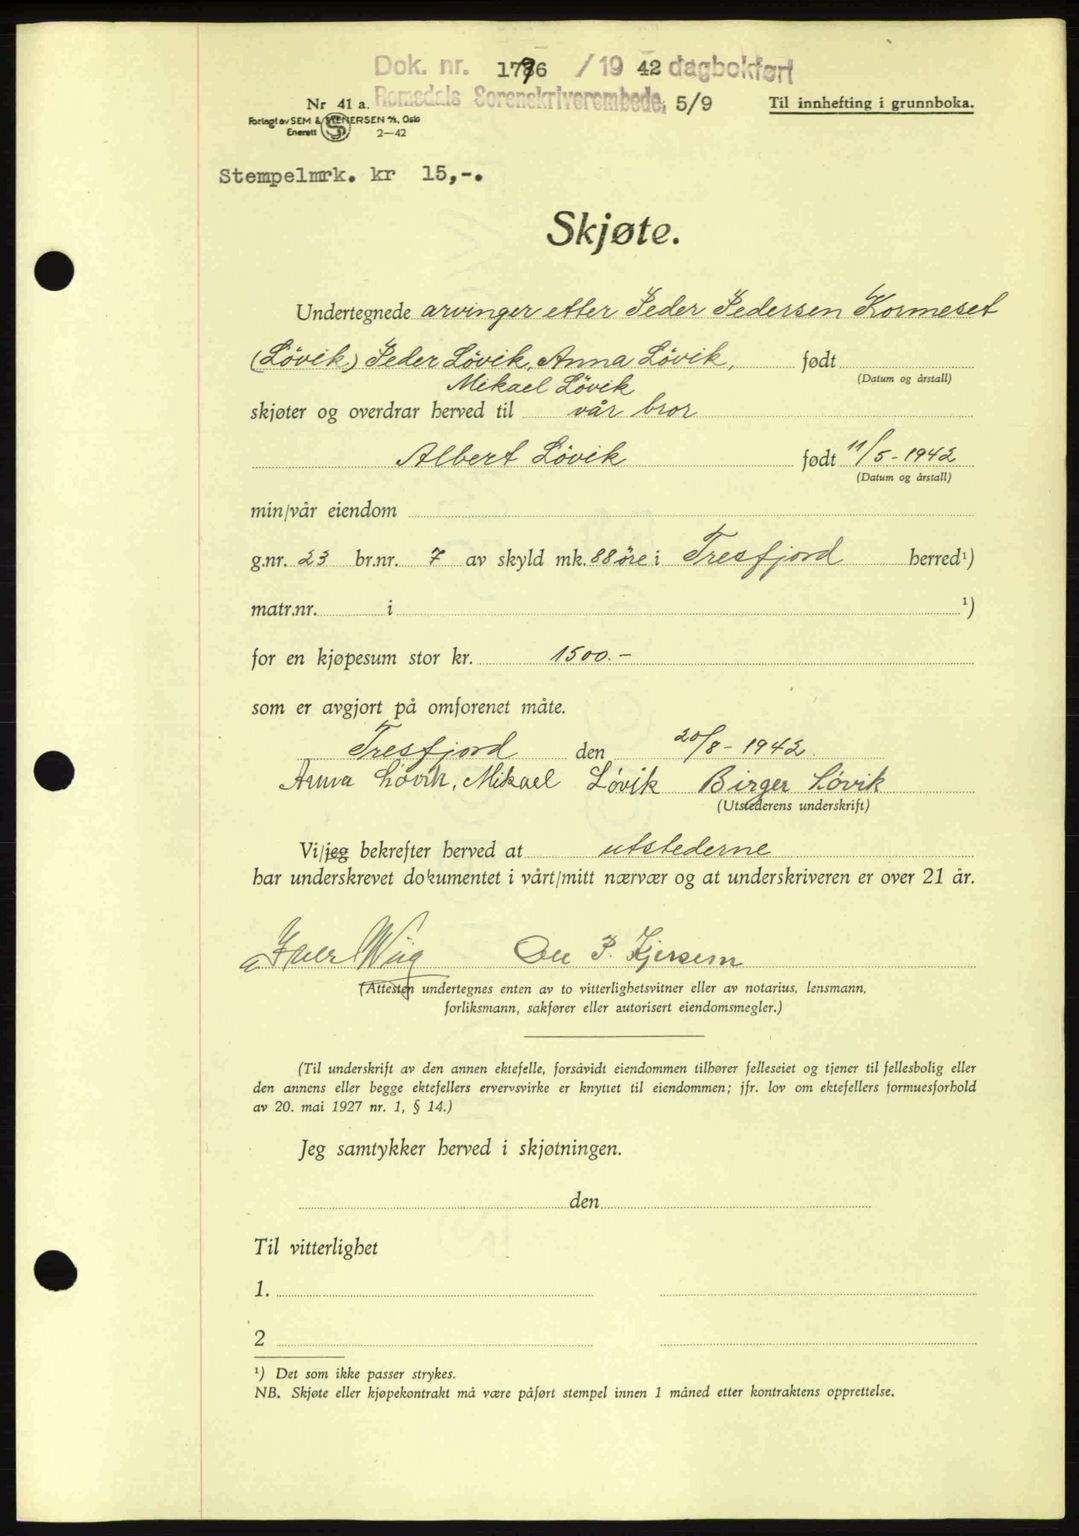 Dok. nr. 1776 / 19 42 dagbokført
Nr 41 a. Romsdals Sorenskriverembede, 5/9 Til innhefting i grunnboka.
Forlagt av SEM & STENERSEN A/S, Oslo
Enerett 2—42
Stempelmrk. kr 15,-.
Skjøte.
Undertegnede arvinger etter Peder Pedersen Kormeset
(Løvik) Peder Løvik, Anna Løvik, født
(Datum og årstall)
Mikael Løvik
skjøter og overdrar herved til vår bror
Albert Løvik født 11/5-1942
(Datum og årstall)
min/vår eiendom
g.nr. 23 br.nr. 7 av skyld mk. 88 øre i Tresfjord herred¹)
matr.nr. i ¹)
for en kjøpesum stor kr. 1500.-
som er avgjort på omforenet måte.
Tresfjord den 20/8-1942.
Anna Løvik, Mikael Løvik Birger Løvik
(Utstederens underskrift)
Vi/jeg bekrefter herved at utstederne
har underskrevet dokumentet i vårt/mitt nærvær og at underskriveren er over 21 år.
Iver Wiig Ole P. Kjersem
(Attesten undertegnes enten av to vitterlighetsvitner eller av notarius, lensmann,
forliksmann, sakfører eller autorisert eiendomsmegler.)
(Til underskrift av den annen ektefelle, forsåvidt eiendommen tilhører felleseiet og tjener til fellesbolig eller
den annens eller begge ektefellers ervervsvirke er knyttet til eiendommen; jfr. lov om ektefellers formuesforhold
av 20. mai 1927 nr. 1, § 14.)
Jeg samtykker herved i skjøtningen.
den
Til vitterlighet
1.
2
¹) Det som ikke passer strykes.
NB. Skjøte eller kjøpekontrakt må være påført stempel innen 1 måned etter kontraktens opprettelse.